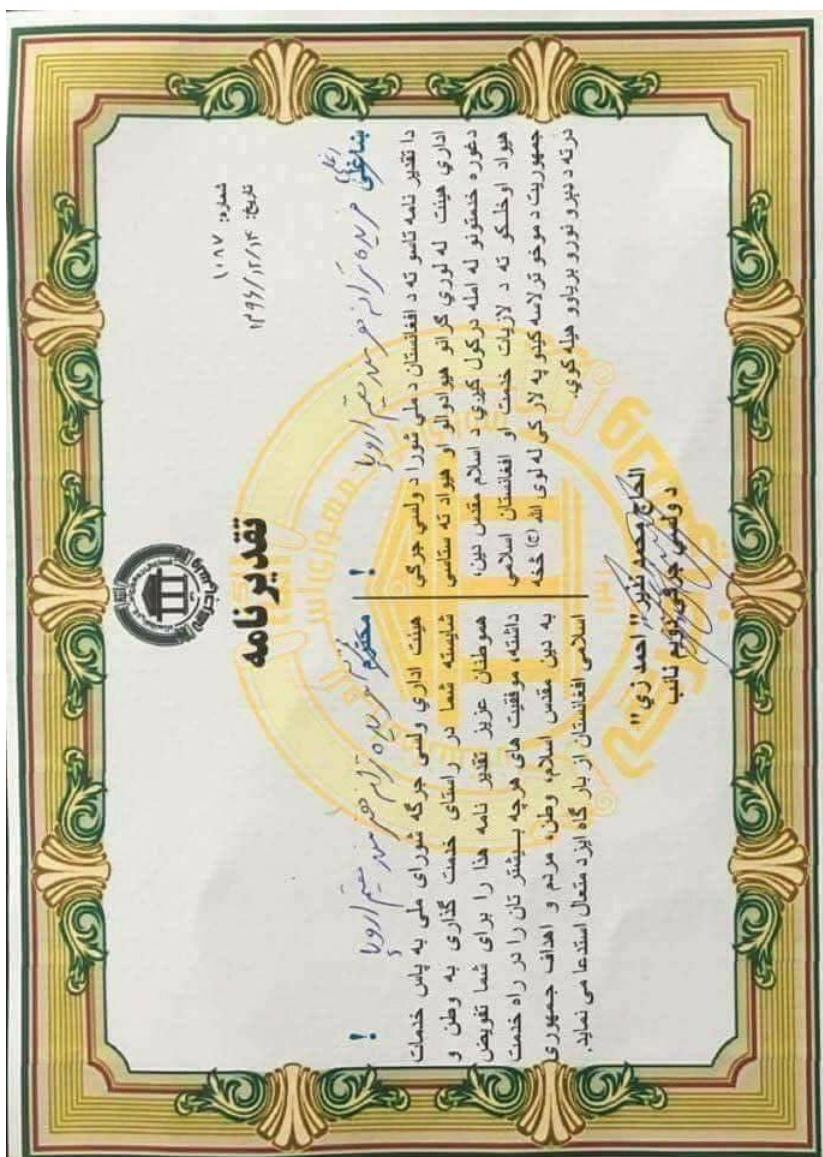 شماره: ۱۰۸۷
تاریخ: ۱۳۹۶/۱۲/۱۴
تقدیر نامه
ښاغلی فریده ترانه هنرمند مقیم اروپا !
دا تقدیر نامه تاسو ته د افغانستان د ملي شورا د ولسي جرگي
اداري هیئت له لوري گرانو هیوادوالو او هیواد ته ستاسي
دغوره خدمتونو له امله درکول کیږي د اسلام مقدس دین،
هیواد اوخلکو ته د لازیات خدمت او افغانستان اسلامي
جمهوریت د موخو ترلاسه کیدو په لار کي له لوی الله (ج) څخه
درته د ډیرو نورو بریاوو هیله کوي.
محترم فریده ترانه هنرمند مقیم اروپا !
هیئت اداري ولسي جرگه شورای ملی به پاس خدمات
شایسته شما در راستای خدمت گذاری به وطن و
هموطنان عزیز تقدیر نامه هذا را برای شما تفویض
داشته، موفقیت های هرچه بیشتر تان را در راه خدمت
به دین مقدس اسلام، وطن، مردم و اهداف جمهوری
اسلامی افغانستان از بار گاه ایزد متعال استدعا می نماید.
الحاج محمد نذیر "احمد زی"
د ولسي جرگي دویم نائب